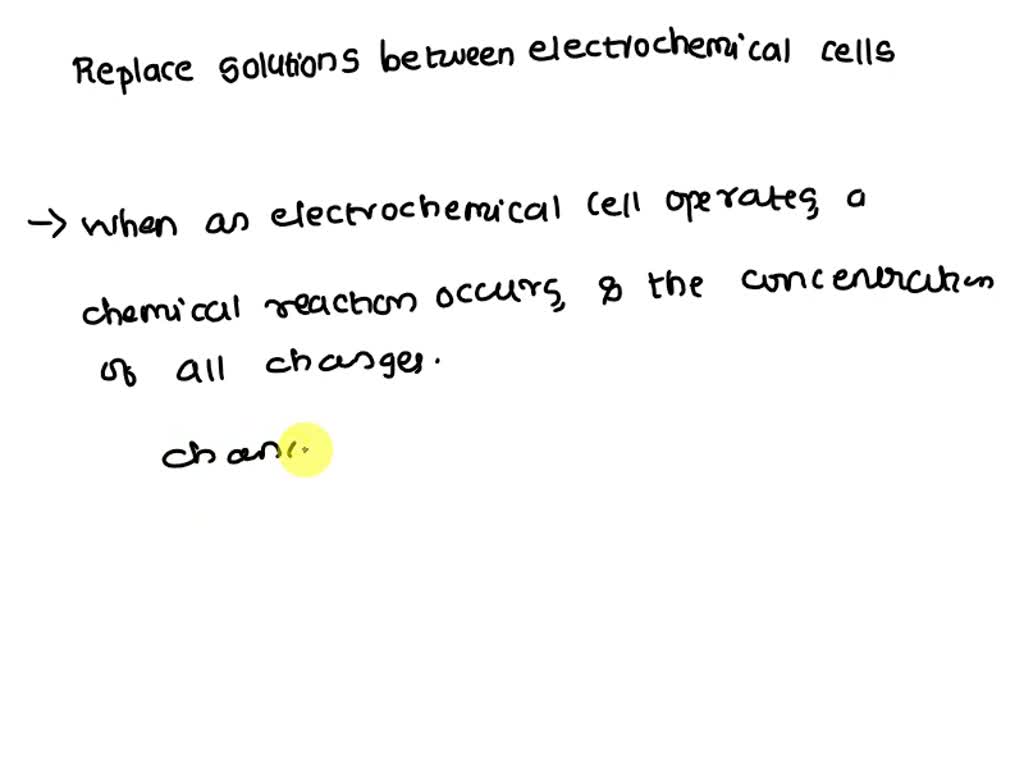 Replace solutions between electrochemical cells
→ when as electrochemical cell operates, a
chemical reaction occurs, & the concentration
of all changes.
chan